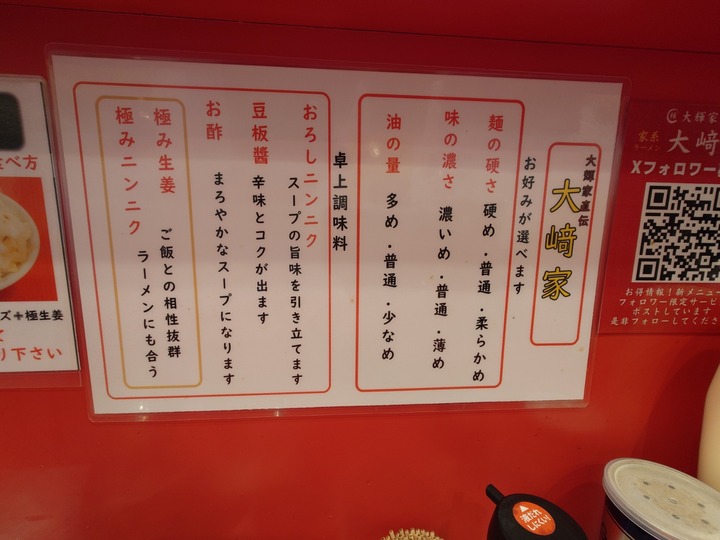 大輝家直伝
大﨑家
お好みが選べます
麺の硬さ 硬め・普通・柔らかめ
味の濃さ 濃いめ・普通・薄め
油の量 多め・普通・少なめ
卓上調味料
おろしニンニク スープの旨味を引き立てます
豆板醤 辛味とコクが出ます
お酢 まろやかなスープになります
極み生姜 ご飯との相性抜群
極みニンニク ラーメンにも合う
べ方
ズ+極生姜
り下さい
大輝家
家系
ラーメン
大﨑
Xフォロワー
お得情報!新メニュー
フォロワー限定サービ
ポストしています
是非フォローしてくださ
液だれ
しにくい